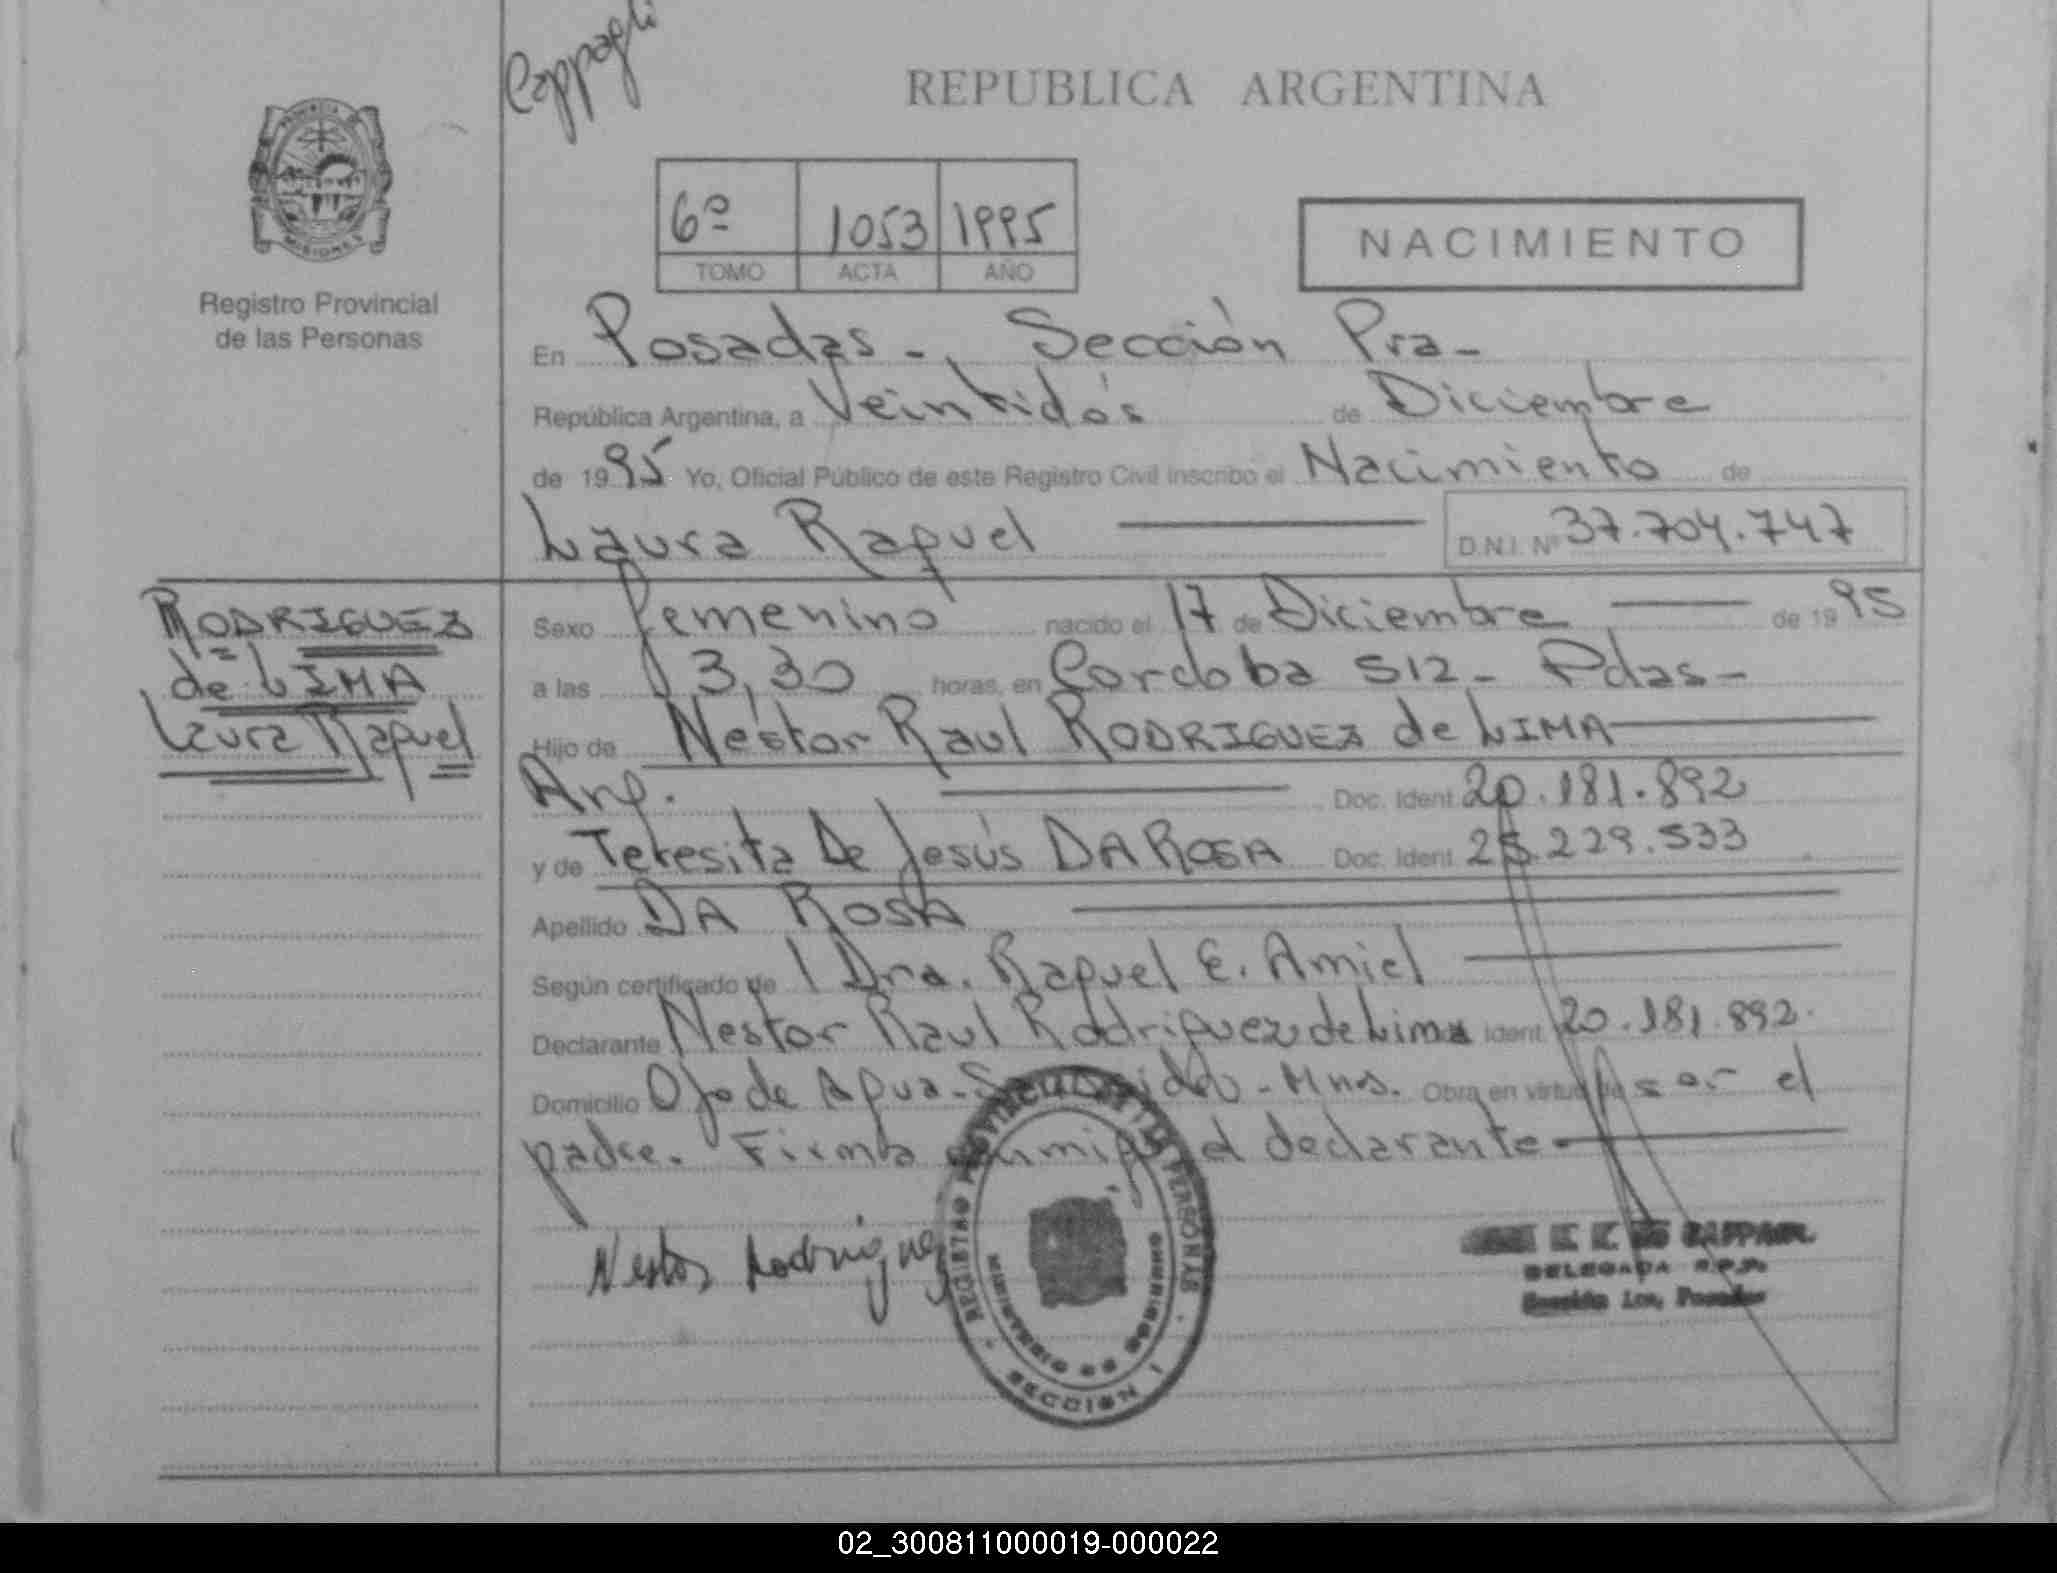 Cappagli
REPUBLICA ARGENTINA
PROVINCIA DE
MISIONES
Registro Provincial
de las Personas
6º 1053 1995
TOMO ACTA AÑO
NACIMIENTO
En Posadas -, Sección Pra -
República Argentina, a Veintidós de Diciembre
de 1995 Yo, Oficial Público de este Registro Civil inscribo el Nacimiento de
Laura Raquel D.N.I. Nº 37.704.747
RODRIGUEZ
de LIMA
Laura Raquel
Sexo femenino nacido el 17 de Diciembre de 1995
a las 13,30 horas, en Cordoba 512 - Pdas -
Hijo de Nestor Raul RODRIGUEZ de LIMA
Arg. Doc. Ident. 20.181.892
y de Teresita De Jesús DA ROSA Doc. Ident. 25.229.533
Apellido DA ROSA
Según certificado de Dra. Raquel E. Amiel
Declarante Nestor Raul Rodriguez de Lima Ident. 20.181.892.
Domicilio Ojo de Agua - - Mnes. Obra en virtud de ser el
padre. Firma conmigo el declarante -
Nestor Rodriguez
REGISTRO PROVINCIAL DE LAS PERSONAS
MINISTERIO DE GOBIERNO
SECCION 1
DELEGADA R.P.P.
Sección 1ra, Posadas
02_300811000019-000022